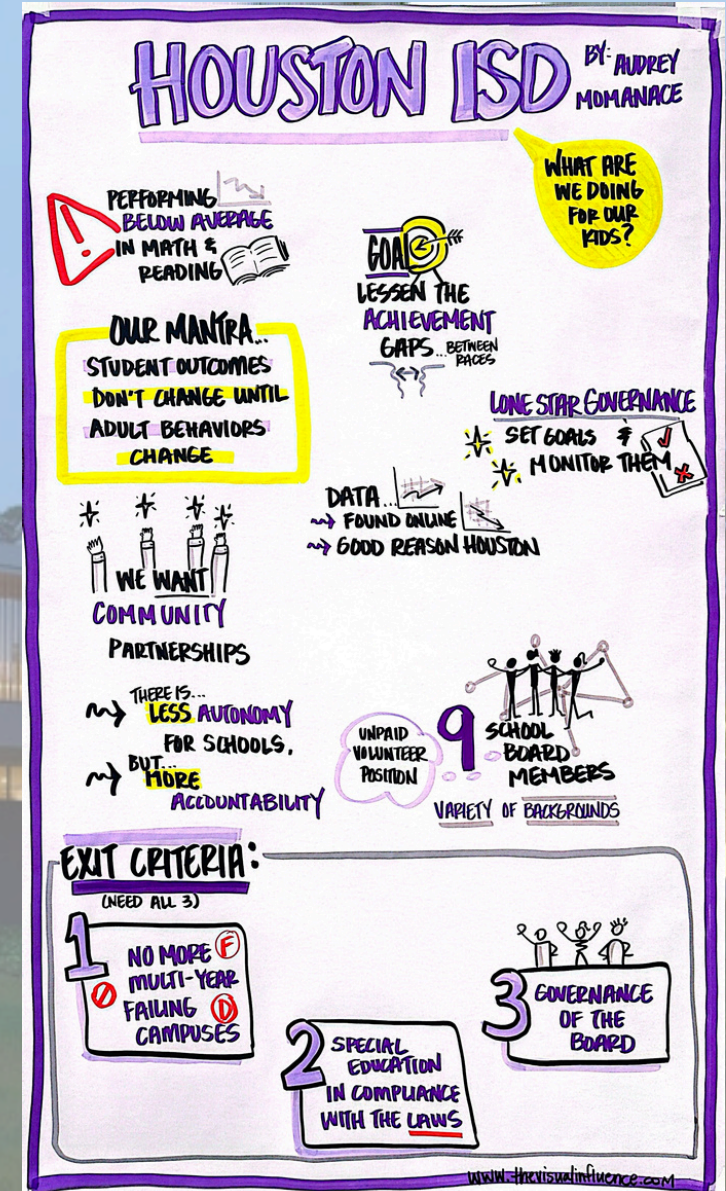 HOUSTON ISD
BY: AUDREY
MOMANAEE
WHAT ARE
WE DOING
FOR OUR
KIDS?
PERFORMING
BELOW AVERAGE
IN MATH &
READING
GOAL
LESSEN THE
ACHIEVEMENT
GAPS... BETWEEN
RACES
OUR MANTRA...
STUDENT OUTCOMES
DON'T CHANGE UNTIL
ADULT BEHAVIORS
CHANGE
LONE STAR GOVERNANCE
SET GOALS &
MONITOR THEM
DATA...
FOUND ONLINE
GOOD REASON HOUSTON
WE WANT
COMMUNITY
PARTNERSHIPS
THERE IS...
LESS AUTONOMY
FOR SCHOOLS,
BUT...
MORE
ACCOUNTABILITY
UNPAID
VOLUNTEER
POSITION
9 SCHOOL
BOARD
MEMBERS
VARIETY OF BACKGROUNDS
EXIT CRITERIA:
(NEED ALL 3)
1
NO MORE F
MULTI-YEAR
FAILING D
CAMPUSES
2
SPECIAL
EDUCATION
IN COMPLIANCE
WITH THE LAWS
3
GOVERNANCE
OF THE
BOARD
www.thevisualinfluence.com